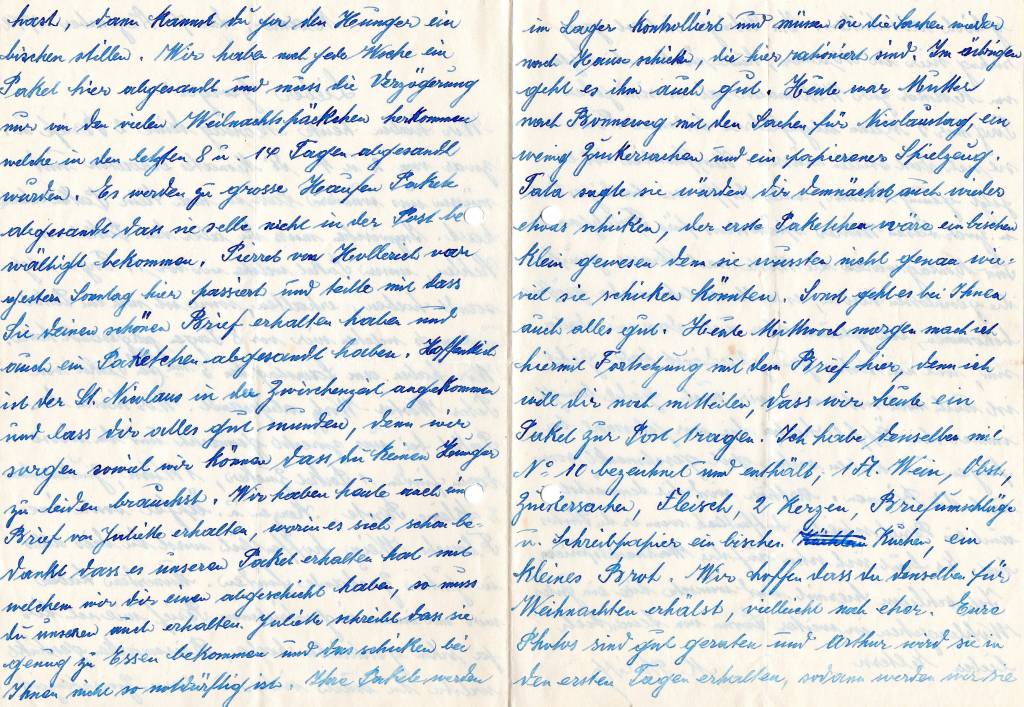 hast, dann kannst du for den Hunger ein
bischen stillen. Wir haben noch jede Woche ein
Paket hier abgesandt und muss die Verzögerung
nur von den vielen Weihnachtspäckchen herkommen
welche in den letzten 8 u. 14 Tagen abgesandt
wurden. Es werden zu grosse Haufen Pakete
abgesandt dass sie selbe nicht in der Post be-
wältigt bekommen. Pierrot von Hollerich war
gestern Sonntag hier passiert und teilte mit dass
Sie deinen schönen Brief erhalten haben und
auch ein Paketchen abgesandt haben. Hoffentlich
ist der St. Nicolaus in der Zwischenzeit angekommen
und lass dir alles gut munden, denn wir
sorgen soviel wir können dass du keinen Hunger
zu leiden brauchst. Wir haben heute auch im
Brief von Juliette erhalten, worin es sich schon be-
dankt dass es unseren Paket erhalten hat mit
welchem wir dir einen abgeschickt haben, so muss
du unseren auch erhalten. Juliette schreibt dass sie
genug zu Essen bekommen und das schicken bei
Ihnen nicht so notdürftig ist. Ihre Pakete werden
im Lager kontrolliert und müssen sie die Sachen wieder
nach Hause schicken, die hier rationiert sind. Im übrigen
geht es ihm auch gut. Heute war Mutter
nach Bonneweg mit den Sachen für Nicolaustag, ein
wenig Zuckersachen und ein papierener Spielzeug.
Tata sagte sie würden dir demnächst auch wieder
etwas schicken, der erste Paketchen wäre ein bischen
klein gewesen denn sie wussten nicht genau wie-
viel sie schicken könnten. Sonst geht es bei Ihnen
auch alles gut. Heute Mittwoch morgen mach ich
hiermit Fortsetzung mit dem Brief hier, denn ich
will dir noch mitteilen, dass wir heute ein
Paket zur Post tragen. Ich habe denselben mit
No 10 bezeichnet und enthält, 1 Fl. Wein, Obst,
Zuckersachen, Fleisch, 2 Kerzen, Briefumschläge
u. Schreibpapier ein bischen Kuchen, ein
kleines Brot. Wir hoffen dass du denselben für
Weihnachten erhälst, vielleicht noch eher. Eure
Photos sind gut geraten und Arthur wird sie in
den ersten Tagen erhalten, sodann werden wir sie